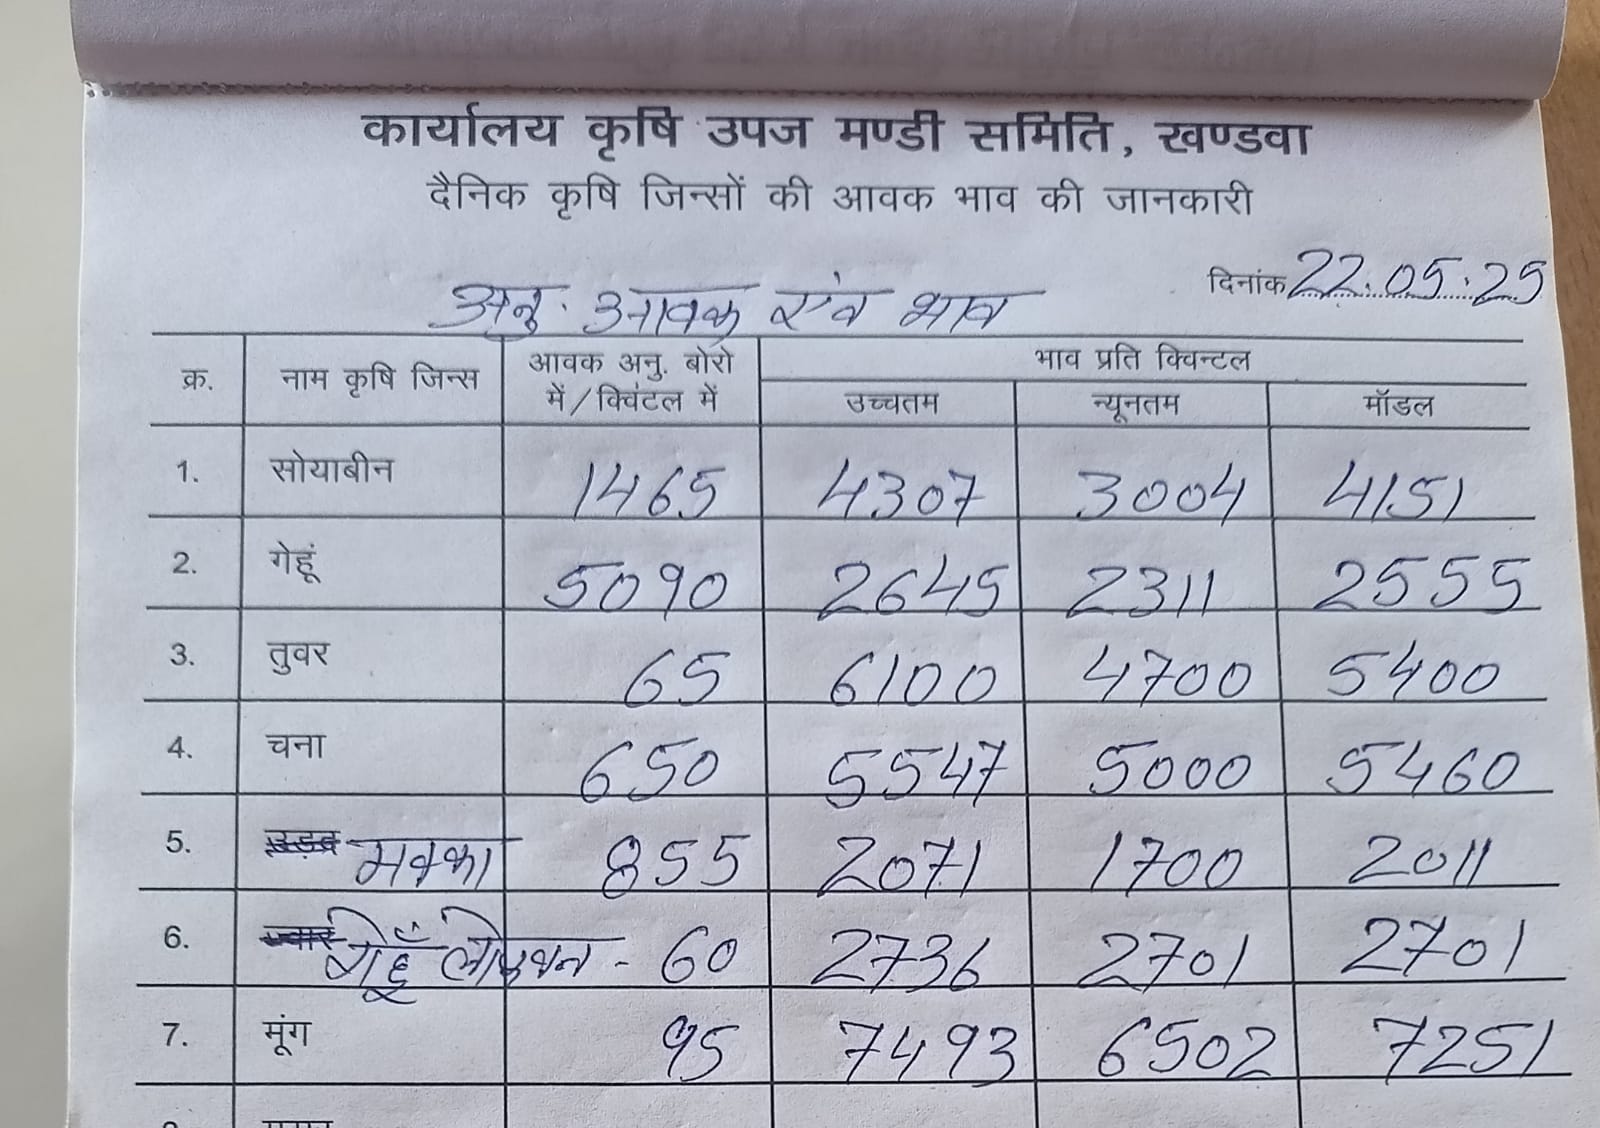 कार्यालय कृषि उपज मण्डी समिति, खण्डवा
दैनिक कृषि जिन्सों की आवक भाव की जानकारी
दिनांक 22.05.25
अनु. आवक एंव भाव
क्र. नाम कृषि जिन्स आवक अनु. बोरो में/क्विंटल में भाव प्रति क्विन्टल
उच्चतम न्यूनतम मॉडल
1. सोयाबीन 1465 4307 3004 4151
2. गेहूं 5090 2645 2311 2555
3. तुवर 65 6100 4700 5400
4. चना 650 5547 5000 5460
5. उड़द मक्का 855 2071 1700 2011
6. ज्वार गेहूँ लोकवन - 60 2736 2701 2701
7. मूंग 95 7493 6502 7251